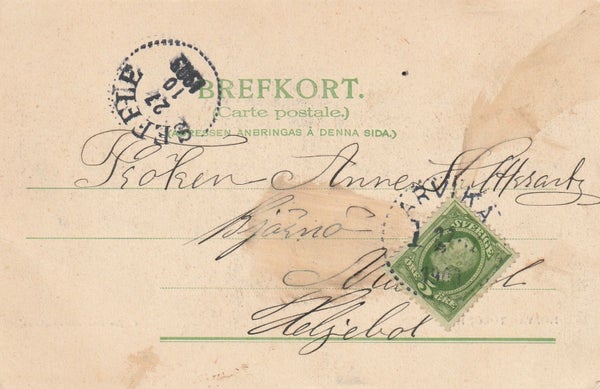 BREFKORT.
(Carte postale.)
(ADRESSEN ANBRINGAS Å DENNA SIDA.)
GEFLE
27
10
Fröken Anna
Björnö
Heljebol
ARVIKA
SVERIGE
5
ÖRE
ÖRE